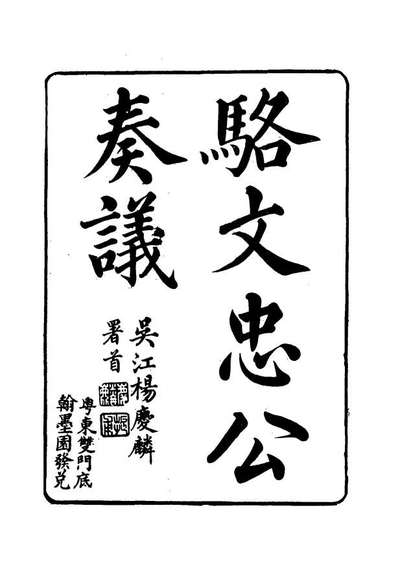 駱文忠公
奏議
吳江楊慶麟
署首
粤東雙門底
翰墨園發兌